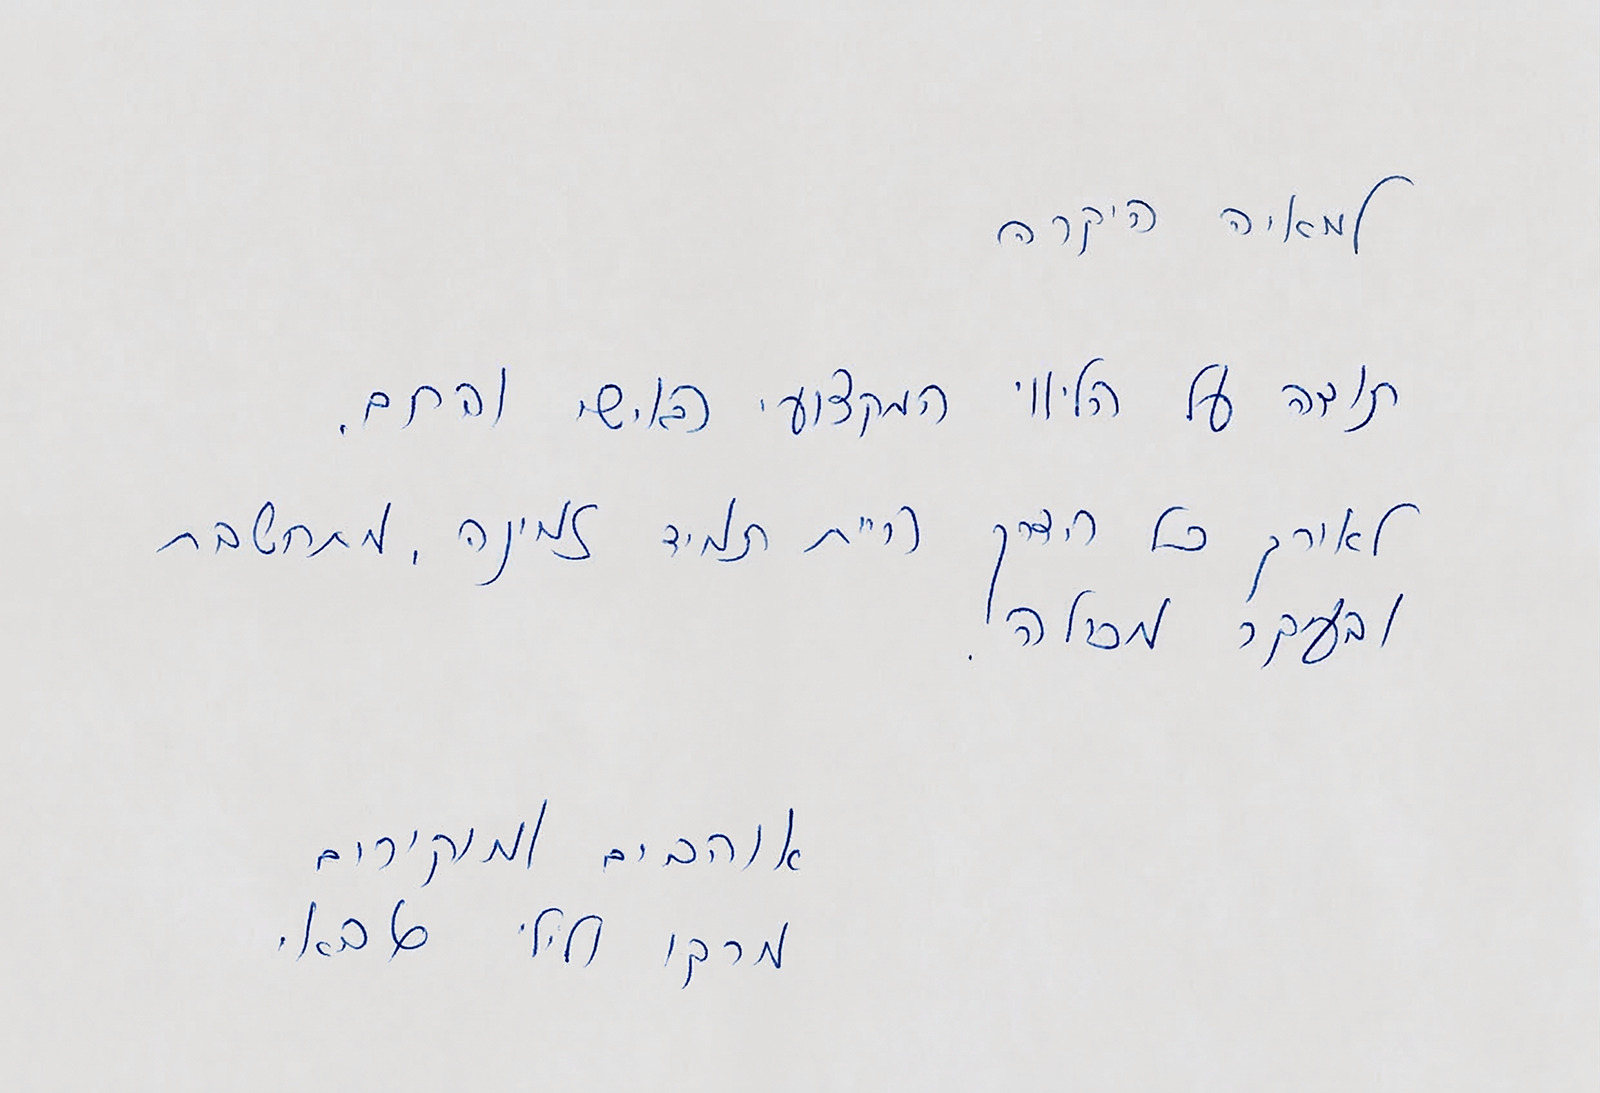 למאיה היקרה
תודה על הליווי המקצועי האישי והחם.
לאורך כל הדרך היית תמיד זמינה, מתחשבת
ובעיקר מכילה.
אוהבים ומוקירים
מרקו ולילי טבאי